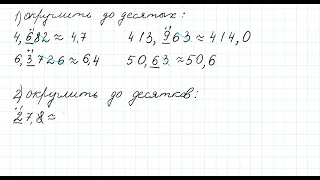 1) округлить до десятых:
4,682 ≈ 4,7 413,963 ≈ 414,0
6,3726 ≈ 6,4 50,63 ≈ 50,6
2) округлить до десятков:
27,8 ≈